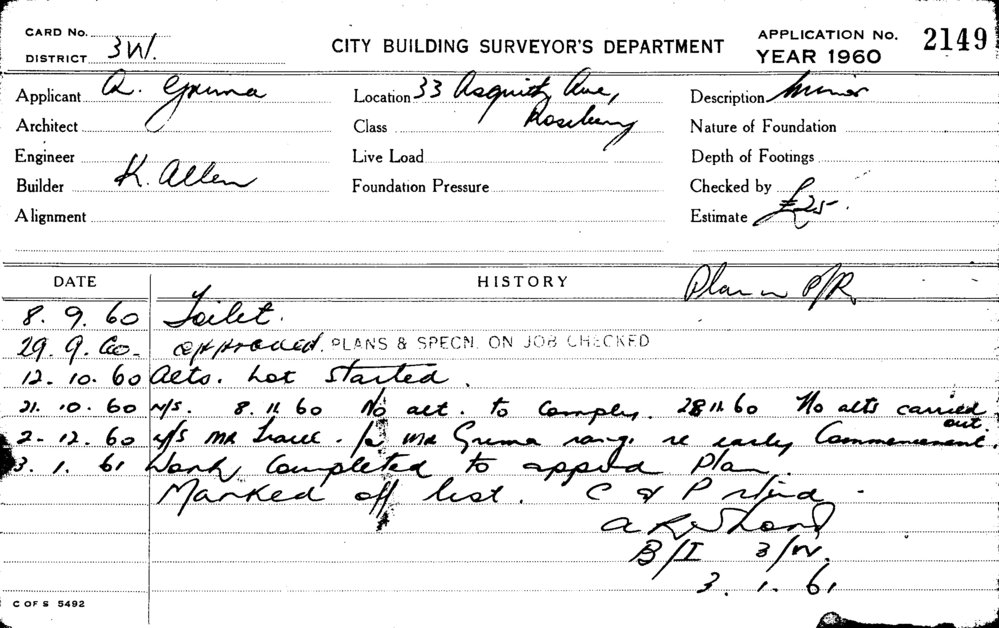 CARD No.
DISTRICT 3W.
CITY BUILDING SURVEYOR'S DEPARTMENT
APPLICATION No. 2149
YEAR 1960
Applicant A. Grima
Location 33 Asquith Ave,
Rosebery
Description Minor
Architect
Class
Nature of Foundation
Engineer
Live Load
Depth of Footings
Builder K. Allen
Foundation Pressure
Checked by
Alignment
Estimate £25.
DATE
HISTORY
Plan P/R
8. 9. 60 Toilet.
29. 9. 60. approved. PLANS & SPECN. ON JOB CHECKED
12. 10. 60 Alts. not started.
21. 10. 60 N/S. 8. 11. 60 No alt. to comply. 28 11 60 No alts carried
out.
2. 12. 60 N/S Mr Grima rang. re early Commencement.
3. 1. 61 Work Completed to apprvd Plan.
Marked off list. C of P
B/I 3/W.
3. 1. 61
C OF S 5492